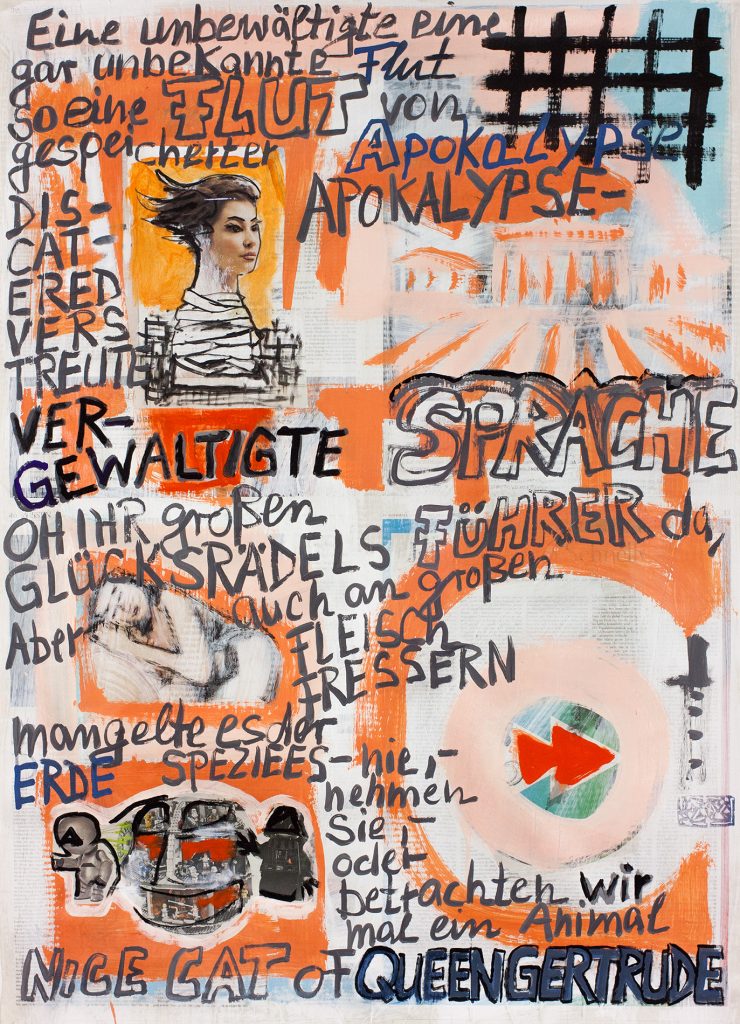 Eine unbewältigte eine
gar unbekannte Flut
so eine FLUT von
gespeicherter APOKALYPSE
APOKALYPSE-
DIS-
CAT-
ERED
VERS
TREUTE
VER-
GEWALTIGTE
SPRACHE
OH IHR großen FÜHRER da,
GLÜCKSRÄDELS
auch an großen
Aber FLEISCH
FRESSERN
mangelte es der
ERDE SPEZIEES-nie,-
nehmen
Sie,-
oder
betrachten wir
mal ein Animal
NICE CAT OF QUEENGERTRUDE